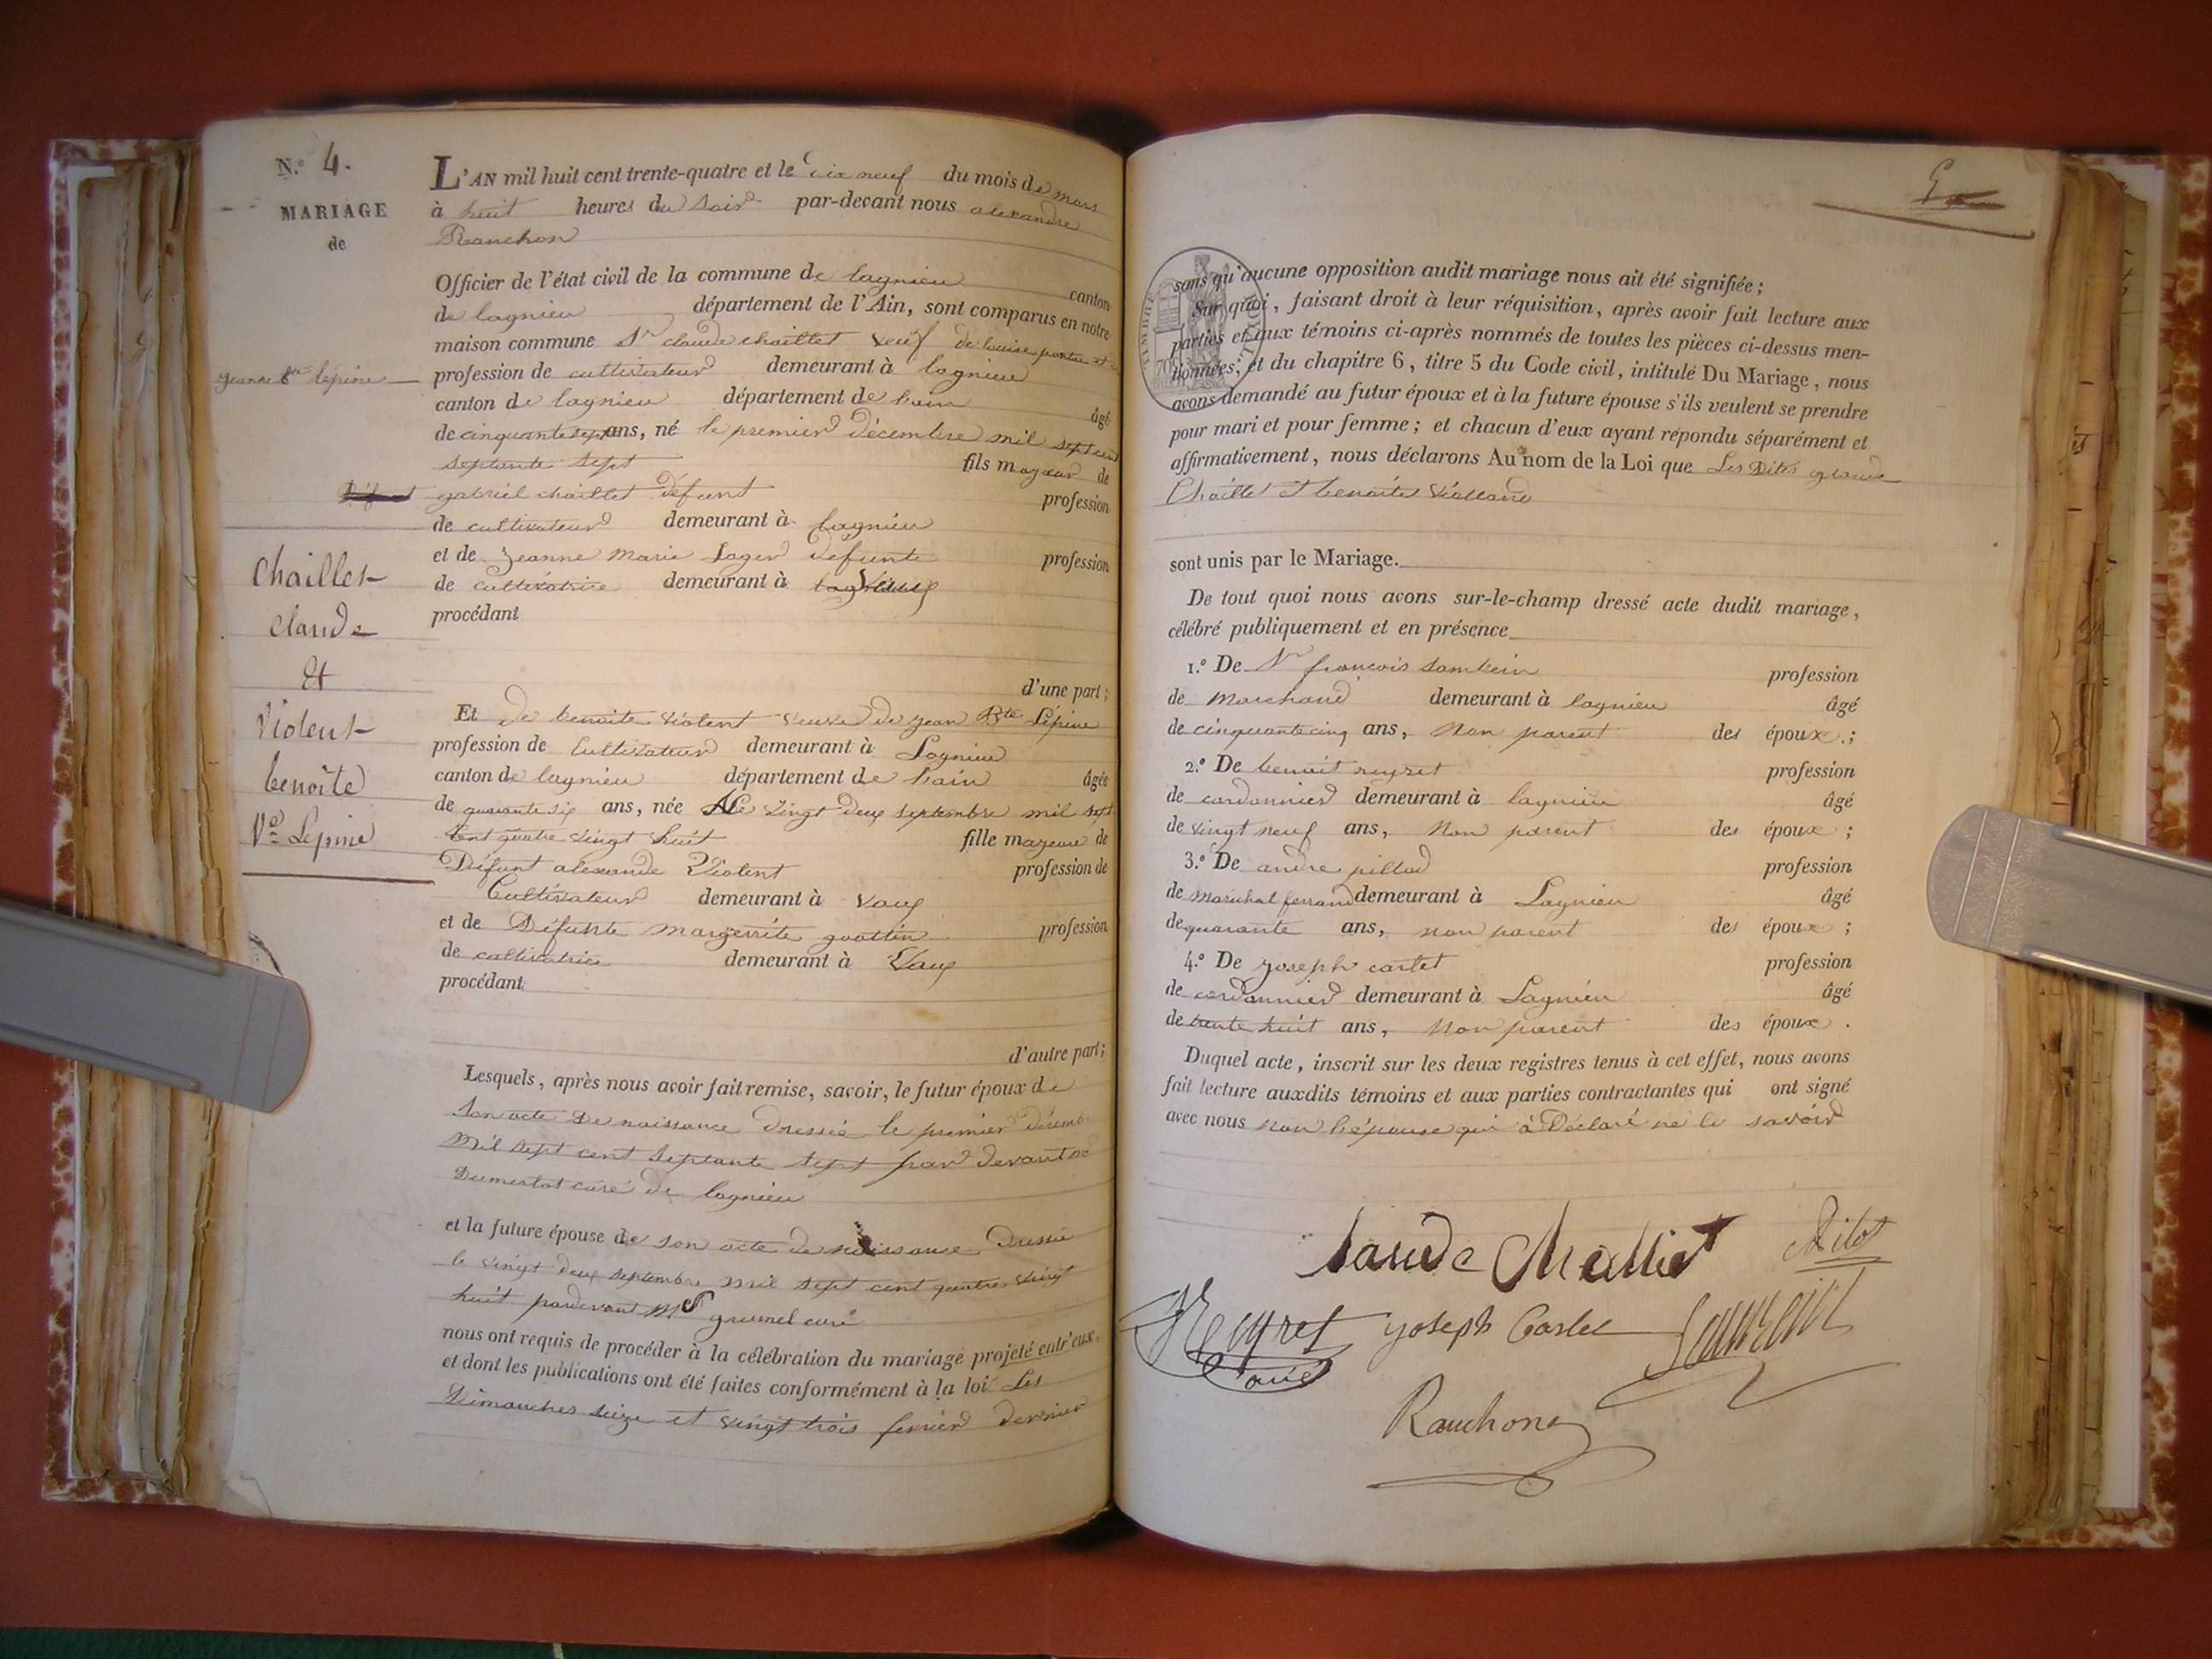 N.º 4.
MARIAGE
de
Jeanne Bte lépine
Chaillet
Claude
Et
Violent
benoîte
Ve Lépine
L'AN mil huit cent trente-quatre et le dix neuf du mois de mars
à huit heures du Soir par-devant nous alexandre
Ranchon
Officier de l'état civil de la commune de lagnieu canton
de lagnieu département de l'Ain, sont comparus en notre
maison commune Sr claude chaillet veuf de louise
profession de cultivateur demeurant à lagnieu
canton de lagnieu département de lain âgé
de cinquante sept ans, né le premier décembre mil sept cent
septante sept fils majeur de
gabriel chaillet défunt profession
de cultivateur demeurant à lagnieu
et de Jeanne Marie Lager défunte profession
de cultivatrice demeurant à Vaux
procédant
d'une part;
Et de benoite violent veuve de jean Bte Lépine
profession de Cultivateur demeurant à Lagnieu
canton de lagnieu département de lain âgée
de quarante six ans, née Le vingt deux septembre mil sept
Cent quatre vingt huit fille majeure de
Défunt alexandre Violent profession de
Cultivateur demeurant à Vaux
et de Défunte margerrite goottin profession
de cultivatrice demeurant à Vaux
procédant
d'autre part;
Lesquels, après nous avoir fait remise, savoir, le futur époux de
Son acte De naissance dressé le premier décemb
Mil sept cent septante sept par devant
Dumertat curé de lagnieu
et la future épouse de son acte de naissance Dressé
le vingt deux septembre mil sept cent quatre vingt
huit pardevant Mr grumel curé
nous ont requis de procéder à la célébration du mariage projeté entr'eux,
et dont les publications ont été faites conformément à la loi Les
Dimanches seize et vingt trois fevrier dernier
sans qu'aucune opposition audit mariage nous ait été signifiée;
Sur quoi, faisant droit à leur réquisition, après avoir fait lecture aux
parties et aux témoins ci-après nommés de toutes les pièces ci-dessus men-
tionnées; et du chapitre 6, titre 5 du Code civil, intitulé Du Mariage, nous
avons demandé au futur époux et à la future épouse s'ils veulent se prendre
pour mari et pour femme; et chacun d'eux ayant répondu séparément et
affirmativement, nous déclarons Au nom de la Loi que Les Dits claude
Chaillet et benoite Violland
sont unis par le Mariage.
De tout quoi nous avons sur-le-champ dressé acte dudit mariage,
célébré publiquement et en présence
1.º De Sr françois Samtein profession
de Marchand demeurant à lagnieu âgé
de cinquante cinq ans, Non parent des époux;
2.º De benoit neyret profession
de cordonnier demeurant à lagnieu âgé
de vingt neuf ans, Non parent des époux;
3.º De andre pillod profession
de Maréchal ferrand demeurant à Lagnieu âgé
de quarante ans, non parent des époux;
4.º De joseph cartet profession
de cordonnier demeurant à Lagnieu âgé
de trente huit ans, Non parent des époux.
Duquel acte, inscrit sur les deux registres tenus à cet effet, nous avons
fait lecture auxdits témoins et aux parties contractantes qui ont signé
avec nous non lépouse qui à Déclaré ne le savoir
Claude Challiet
Pilot
Neyret
Joseph Cartet
Ranchon